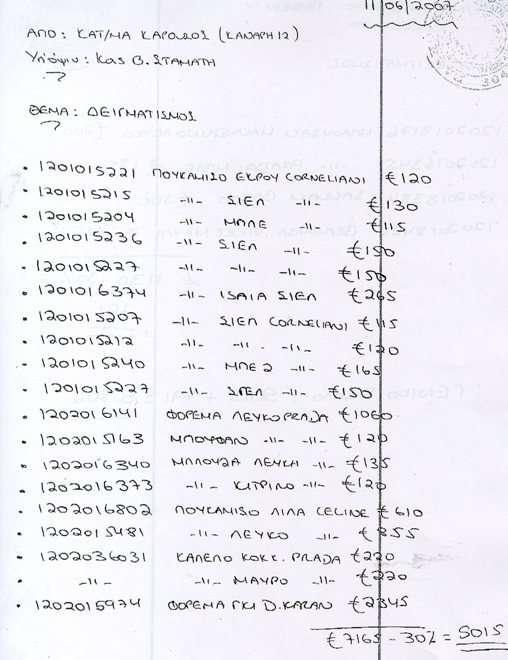 11/06/2007
ΑΠΟ: ΚΑΤ/ΜΑ ΚΑΡΟΥΖΟΣ (ΚΑΝΑΡΗ 12)
Υπόψιν: Κας Θ. ΣΤΑΜΑΤΗ
ΘΕΜΑ: ΔΕΙΓΜΑΤΙΣΜΟΣ
• 1201015221 ΠΟΥΚΑΜΙΣΟ ΕΚΡΟΥ CORNELIANI €120
• 1201015215 -11- ΣΙΕΛ -11- €130
• 1201015204 -11- ΜΠΛΕ -11- €115
• 1201015236 -11- ΣΙΕΛ -11- €150
• 1201015227 -11- -11- -11- €150
• 1201016374 -11- ISAIA ΣΙΕΛ €265
• 1201015207 -11- ΣΙΕΛ CORNELIANI €115
• 1201015212 -11- -11- -11- €120
• 1201015240 -11- ΜΠΕΖ -11- €165
• 1201015227 -11- ΣΙΕΛ -11- €150
• 1202016141 ΦΟΡΕΜΑ ΛΕΥΚΟ PRADA €1060
• 1202015163 ΜΠΟΥΦΑΝ -11- -11- €120
• 1202016340 ΜΠΛΟΥΖΑ ΛΕΥΚΗ -11- €135
• 1202016373 -11- ΚΙΤΡΙΝΟ -11- €120
• 1202016802 ΠΟΥΚΑΜΙΣΟ ΛΙΛΑ CELINE €610
• 1202015481 -11- ΛΕΥΚΟ -11- €855
• 1202036031 ΚΑΠΕΛΟ ΚΟΚΚ. PRADA €220
• -11- -11- ΜΑΥΡΟ -11- €220
• 1202015974 ΦΟΡΕΜΑ ΓΚΙ D.KARAN €2345
€7165 - 30% = 5015